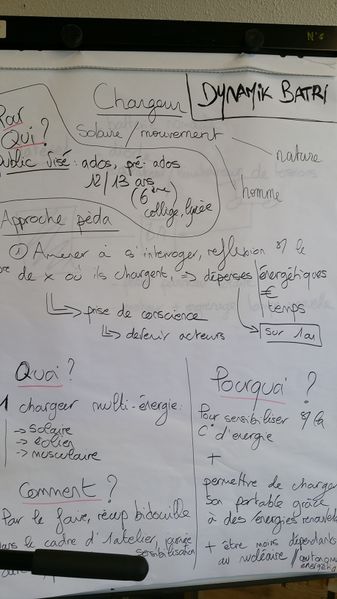 N°6
Chargeur DYNAMIK BATRI
Solaire / mouvement
nature
homme
Par
Qui?
Public visé: ados, pré-ados
12/13 ans
(6ème)
collège, lycée
Approche péda
① Amener à s'interroger, reflexion s/ le
de x où ils chargent, ⇒ dépenses énergétiques
€
temps
sur 1 an
↳ prise de conscience
↳ devenir acteurs
Quoi?
1 chargeur multi-énergie:
→ solaire
→ éolien
→ musculaire
Comment?
Par le faire, récup bidouille
dans le cadre d'1 atelier, journée
sensibilisation
Pourquoi?
Pour sensibiliser s/ la
C° d'energie
+
permettre de charger
son portable grâce
à des énergies renouvela
+ être moins dépendants
au nucléaire / autonomie
énergét